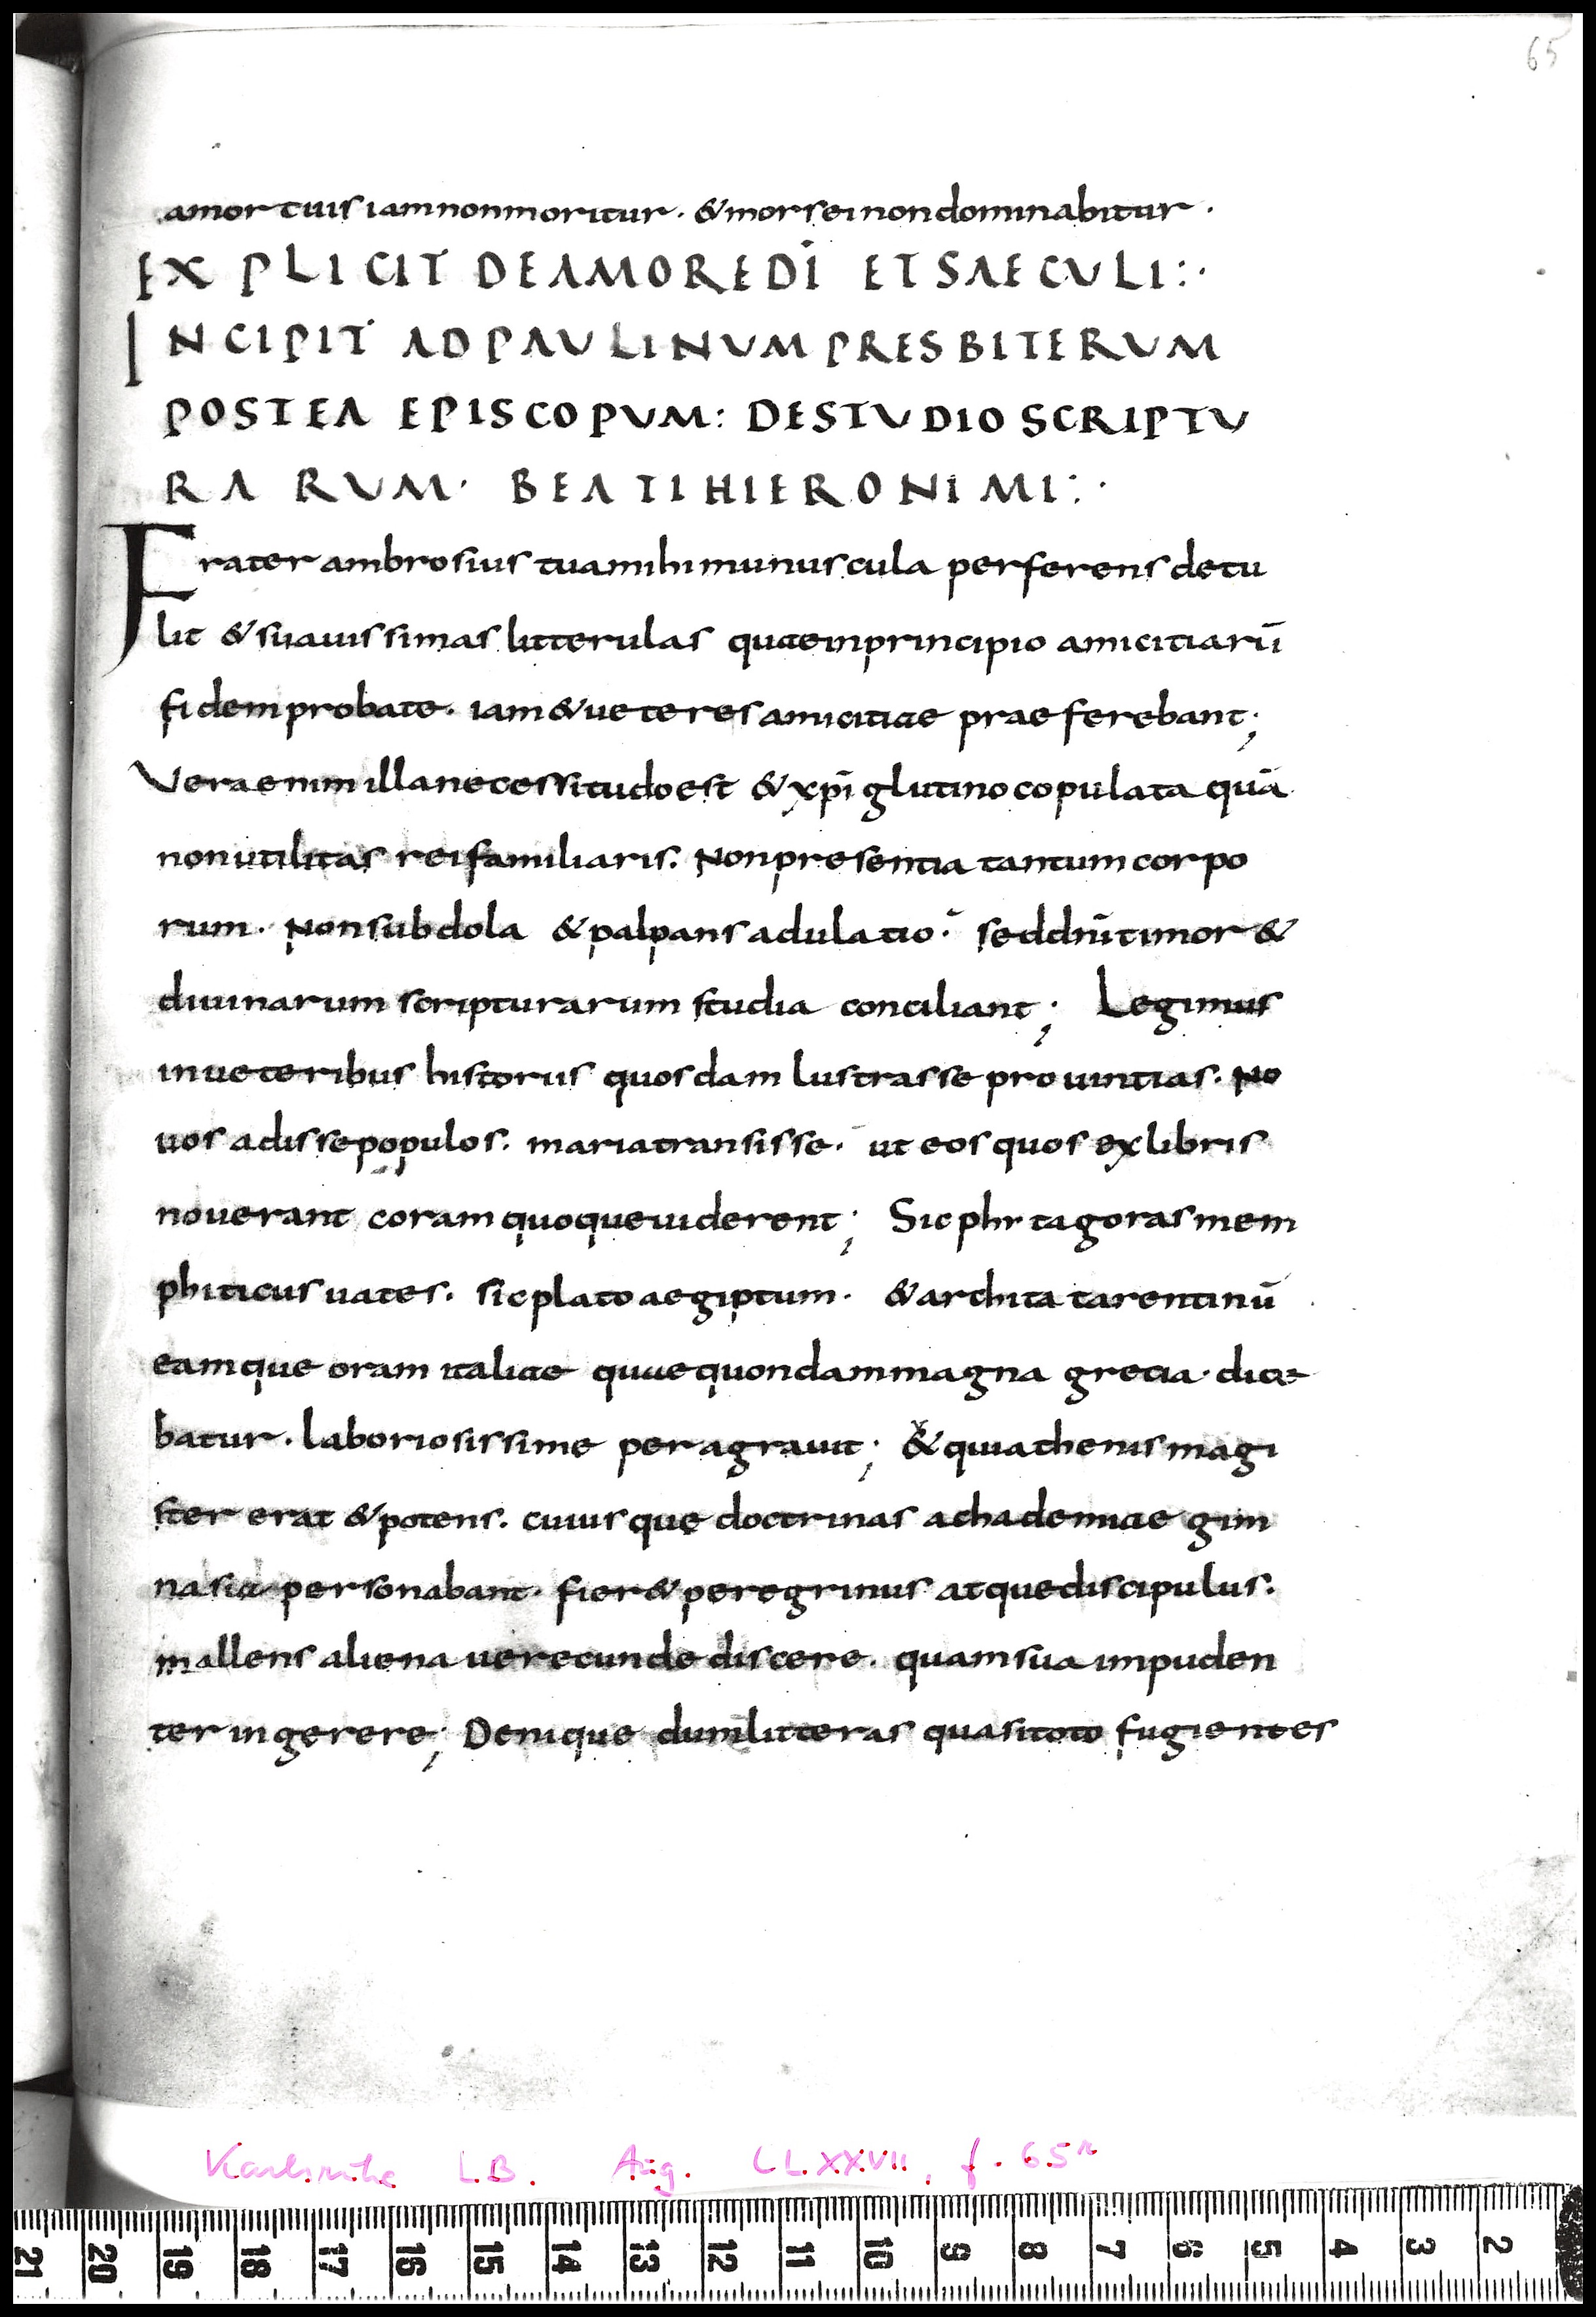 65
amortuis iam non moritur. & mors ei non dominabitur.
EXPLICIT DE AMORE DĪ ET SAECULI:.
INCIPIT AD PAULINUM PRESBITERUM
POSTEA EPISCOPUM: DE STUDIO SCRIPTU
RARUM. BEATI HIERONIMI:.
Frater ambrosius tua mihi munuscula perferens detu
lit & suauissimas litterulas quae in principio amicitiarū
fidem probate. iam & ueteres amicitiae praeferebant;
Vera enim illa necessitudo est & xp̄i glutino copulata quā
non utilitas rei familiaris. Non presentia tantum corpo
rum. Non subdola & palpans adulatio. sed dn̄i timor &
diuinarum scripturarum studia conciliant; Legimus
in ueteribus historiis quosdam lustrasse prouintias. No
uos adisse populos. maria transisse. ut eos quos ex libris
nouerant coram quoque uiderent; Sic phitagoras mem
phiticus uates. sic plato aegiptum. & archita tarentinū
eamque oram italiae quae quondam magna grecia. dice
batur. laboriosissime peragrauit; & qui athenis magi
ster erat & potens. cuiusque doctrinas achademiae gim
nasia personabant. fier& peregrinus atque discipulus.
mallens aliena uerecunde discere. quam sua impuden
ter ingerere; Denique dum litteras quasi toto fugientes
Karlsruhe LB. Aug. CLXXVII, f. 65r
21 20 19 18 17 16 15 14 13 12 11 10 9 8 7 6 5 4 3 2